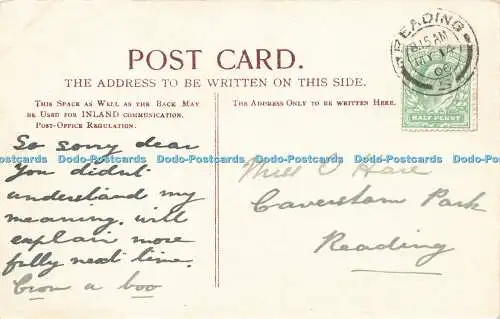 READING
8.15 AM
MY 14
06
POST CARD.
THE ADDRESS TO BE WRITTEN ON THIS SIDE.
THIS SPACE AS WELL AS THE BACK MAY
BE USED FOR INLAND COMMUNICATION.
POST-OFFICE REGULATION.
THE ADDRESS ONLY TO BE WRITTEN HERE.
HALF PENNY
So sorry dear
You didnt
understand my
meaning. will
explain more
fully next time.
a boo
Miss O Hare
Caversham Park
Reading
Dodo-Postcards Dodo-Postcards Dodo-Postcards Dodo-Postcards Dodo-Postcards Dodo-Postcards